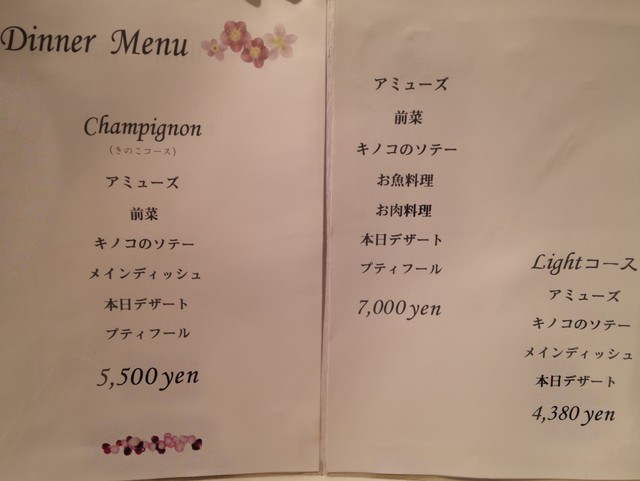 Dinner Menu
Champignon
(きのこコース)
アミューズ
前菜
キノコのソテー
メインディッシュ
本日デザート
プティフール
5,500 yen
アミューズ
前菜
キノコのソテー
お魚料理
お肉料理
本日デザート
プティフール
7,000 yen
Lightコース
アミューズ
キノコのソテー
メインディッシュ
本日デザート
4,380 yen